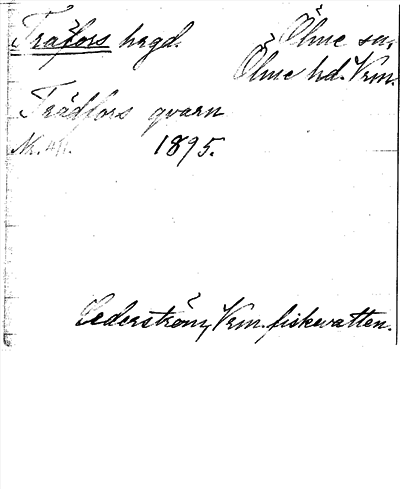 Tråfors hrgd. Ölme sn,
Ölme hd. Vrm.
Trädfors qvarn
1895.
Cederström, Vrm. fiskevatten.